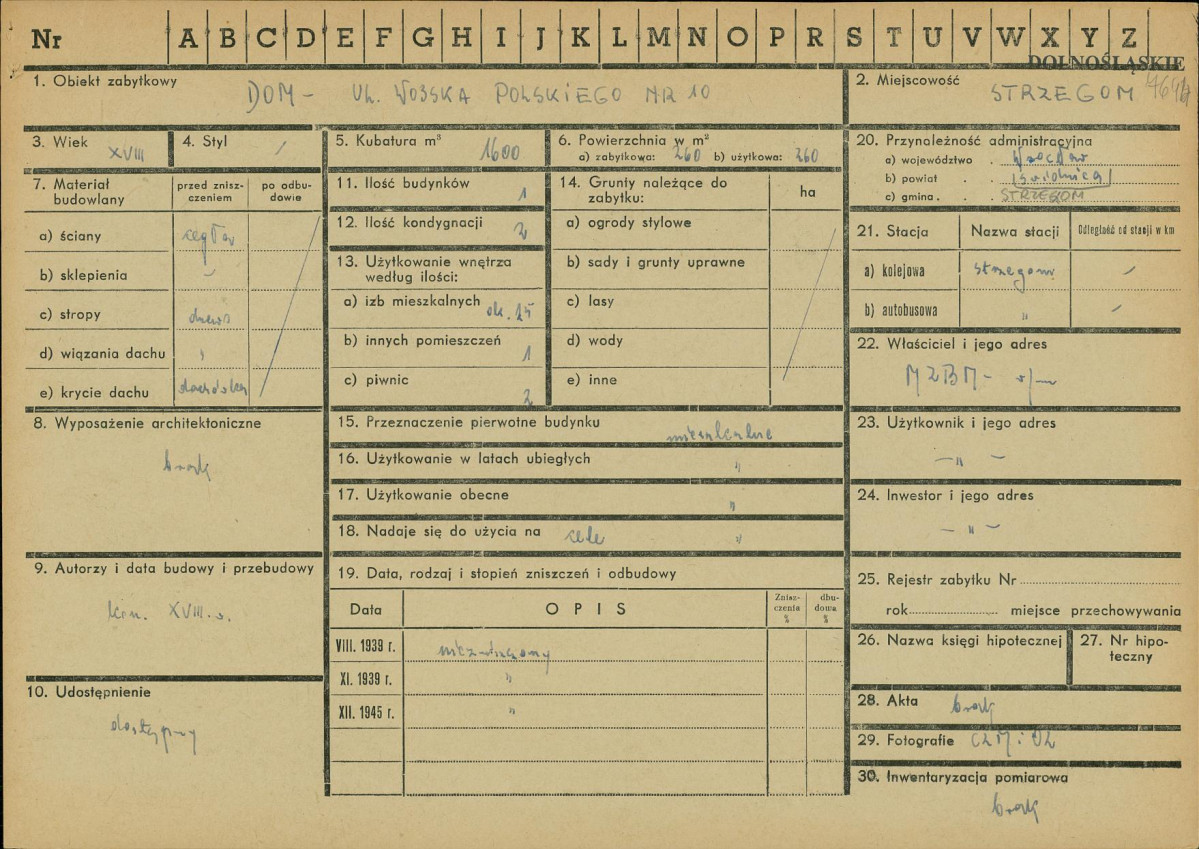 Nr A B C D E F G H I J K L M N O P R S T U V W X Y Z
DOLNOŚLĄSKIE
1. Obiekt zabytkowy DOM - UL. WOJSKA POLSKIEGO NR 10
2. Miejscowość STRZEGOM
3. Wiek XVIII
4. Styl /
5. Kubatura m³ 1600
6. Powierzchnia w m²
a) zabytkowa: 260 b) użytkowa: 260
7. Materiał budowlany
przed zniszczeniem
po odbudowie
a) ściany cegła
b) sklepienia –
c) stropy drewno
d) wiązania dachu "
e) krycie dachu dachówka
8. Wyposażenie architektoniczne
brak
9. Autorzy i data budowy i przebudowy
kon. XVIII w.
10. Udostępnienie
dostępny
11. Ilość budynków 1
12. Ilość kondygnacji 2
13. Użytkowanie wnętrza
według ilości:
a) izb mieszkalnych ok. 25
b) innych pomieszczeń 1
c) piwnic 2
14. Grunty należące do
zabytku:
ha
a) ogrody stylowe
b) sady i grunty uprawne
c) lasy
d) wody
e) inne
15. Przeznaczenie pierwotne budynku mieszkalne
16. Użytkowanie w latach ubiegłych "
17. Użytkowanie obecne "
18. Nadaje się do użycia na cele "
19. Data, rodzaj i stopień zniszczeń i odbudowy
Data OPIS Zniszczenia % dbudowa %
VIII. 1939 r. niezniszczony
XI. 1939 r. "
XII. 1945 r. "
20. Przynależność administracyjna
a) województwo . Wrocław
b) powiat . . Świdnica
c) gmina . . . STRZEGOM
21. Stacja Nazwa stacji Odległość od stacji w km
a) kolejowa Strzegom /
b) autobusowa " /
22. Właściciel i jego adres
MZBM - w/m
23. Użytkownik i jego adres
– " –
24. Inwestor i jego adres
– " –
25. Rejestr zabytku Nr
rok miejsce przechowywania
26. Nazwa księgi hipotecznej
27. Nr hipoteczny
28. Akta brak
29. Fotografie
30. Inwentaryzacja pomiarowa
brak